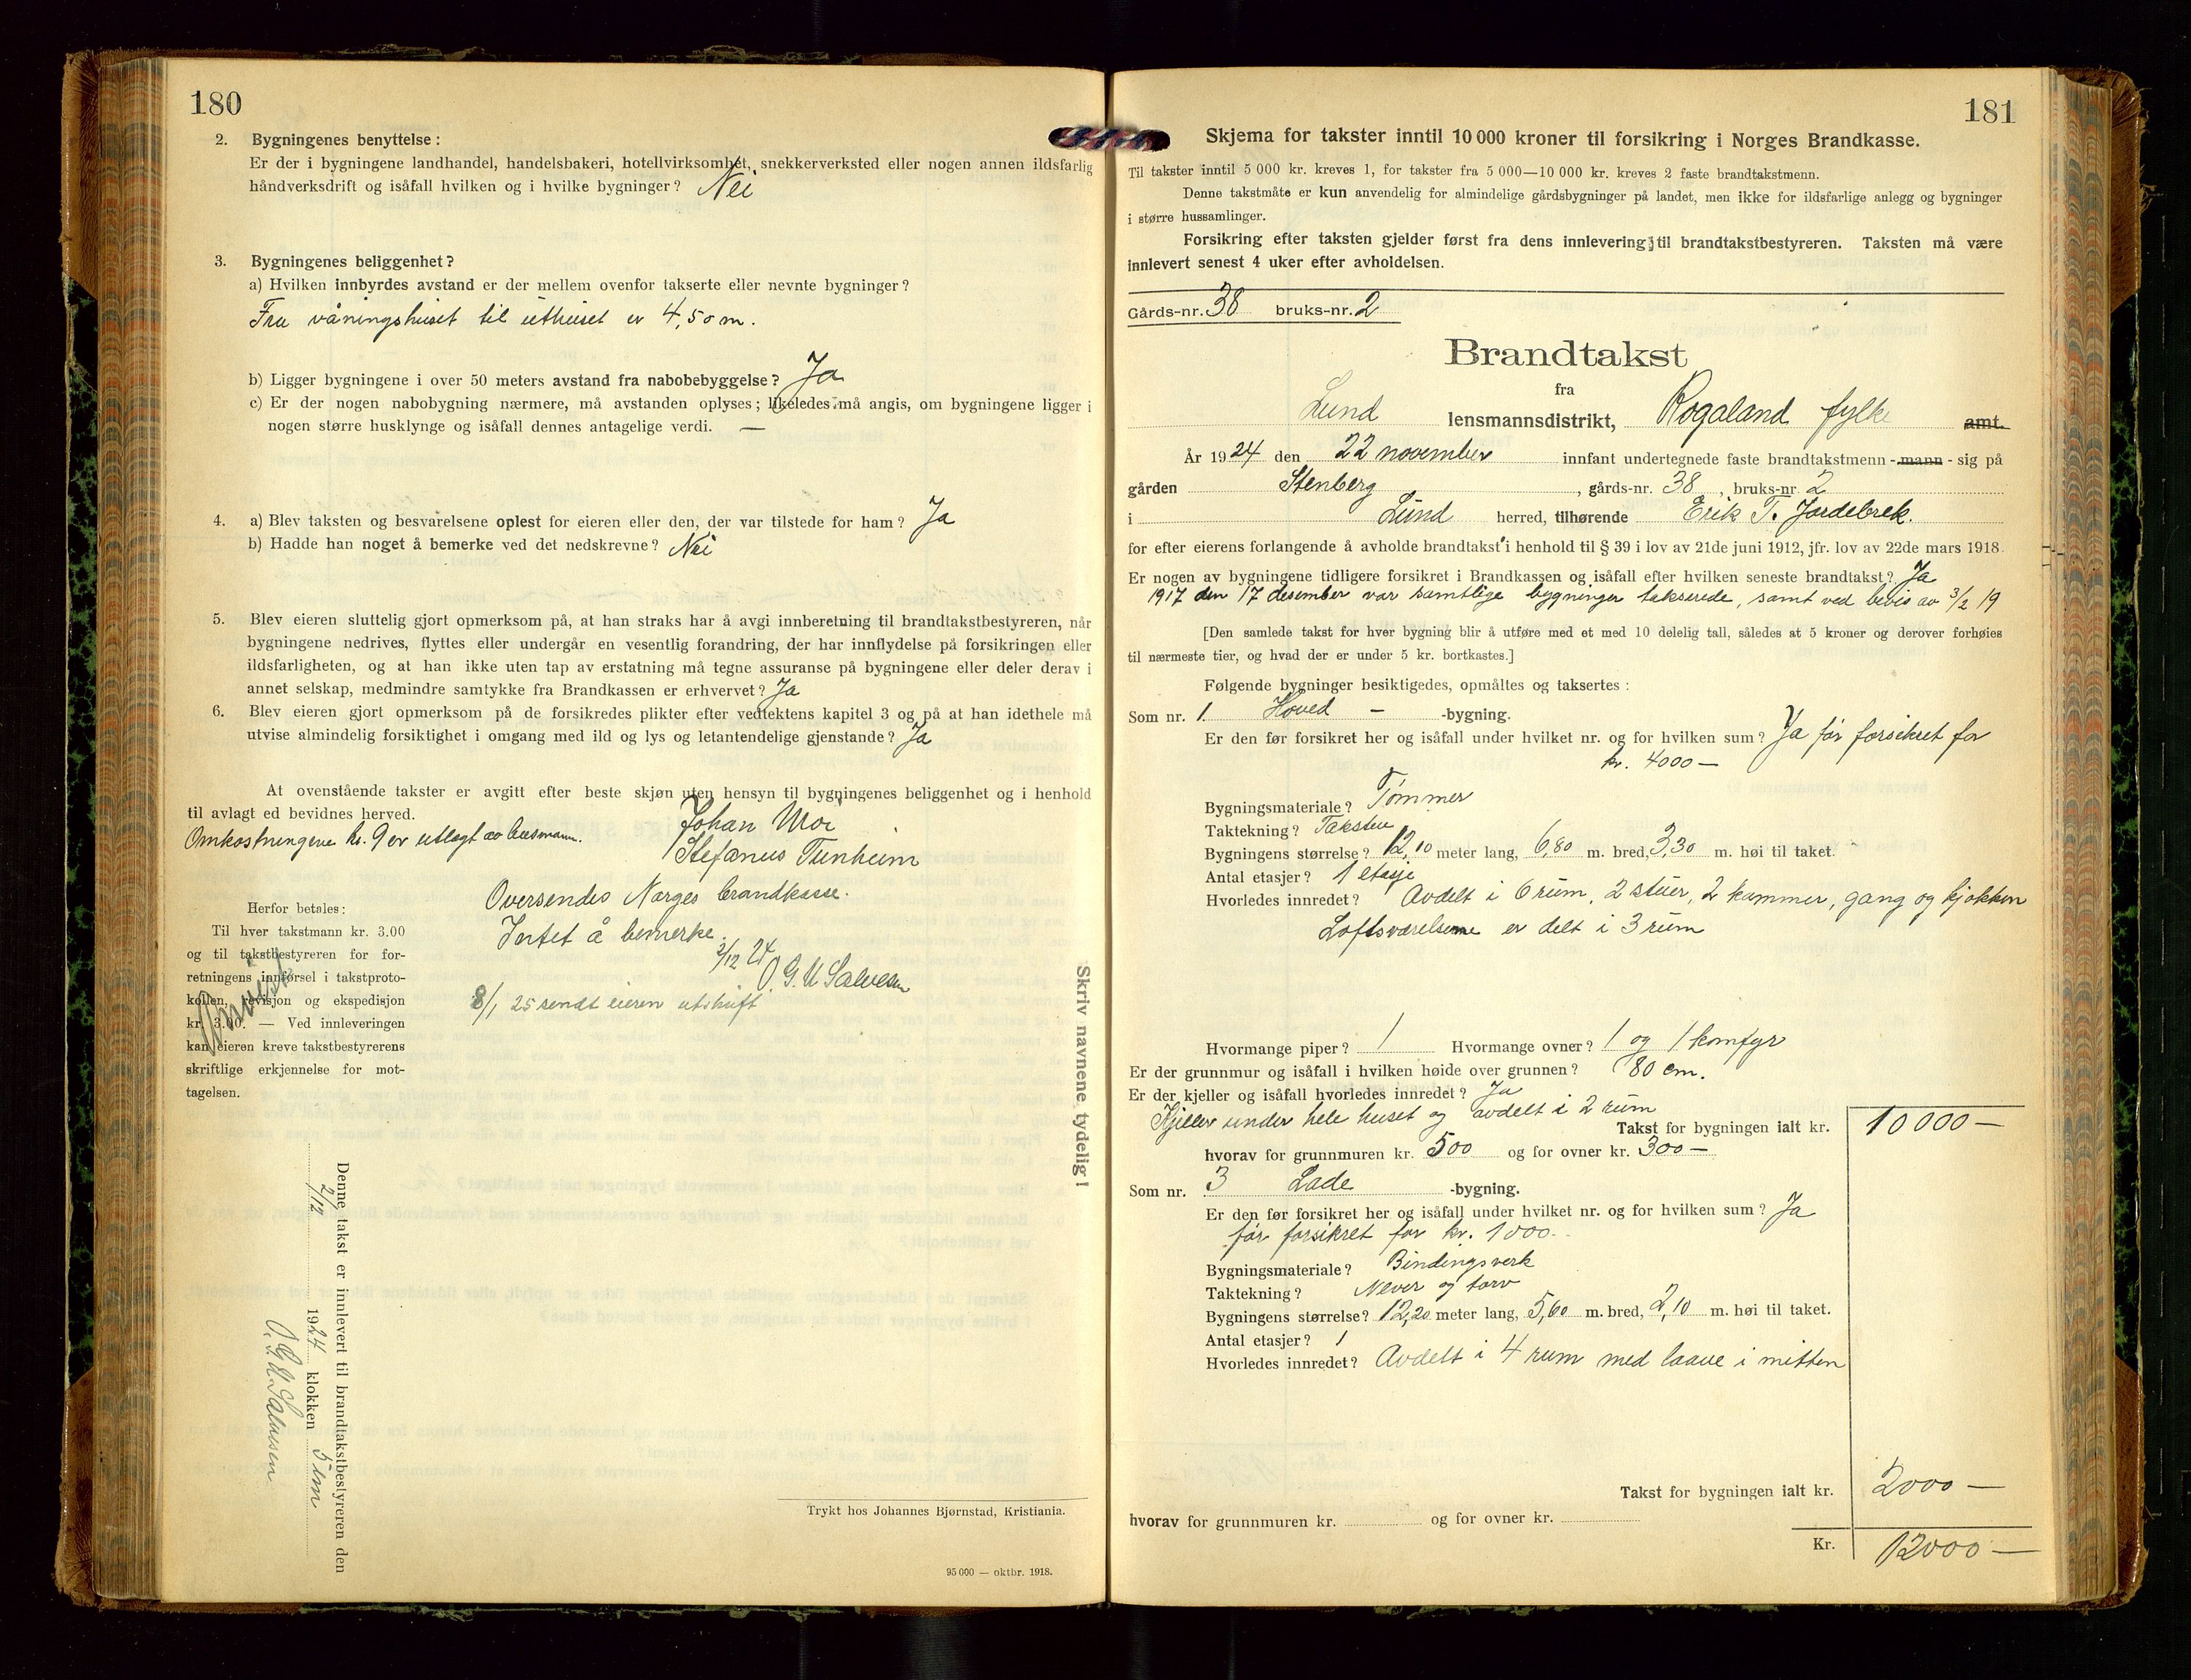 180
2. Bygningenes benyttelse :
Er der i bygningene landhandel, handelsbakeri, hotellvirksomhet, snekkerverksted eller nogen annen ildsfarlig
håndverksdrift og isåfall hvilken og i hvilke bygninger? Nei
3. Bygningenes beliggenhet?
a) Hvilken innbyrdes avstand er der mellem ovenfor takserte eller nevnte bygninger?
Fra våningshuset til uthuset er 4,50 m.
b) Ligger bygningene i over 50 meters avstand fra nabobebyggelse? Ja
c) Er der nogen nabobygning nærmere, må avstanden oplyses; likeledes må angis, om bygningene ligger i
nogen større husklynge og isåfall dennes antagelige verdi. —
4. a) Blev taksten og besvarelsene oplest for eieren eller den, der var tilstede for ham? Ja
b) Hadde han noget å bemerke ved det nedskrevne? Nei
5. Blev eieren sluttelig gjort opmerksom på, at han straks har å avgi innberetning til brandtakstbestyreren, når
bygningene nedrives, flyttes eller undergår en vesentlig forandring, der har innflydelse på forsikringen eller
ildsfarligheten, og at han ikke uten tap av erstatning må tegne assuranse på bygningene eller deler derav i
annet selskap, medmindre samtykke fra Brandkassen er erhvervet? Ja
6. Blev eieren gjort opmerksom på de forsikredes plikter efter vedtektens kapitel 3 og på at han idethele må
utvise almindelig forsiktighet i omgang med ild og lys og letantendelige gjenstande? Ja
At ovenstående takster er avgitt efter beste skjøn uten hensyn til bygningenes beliggenhet og i henhold
til avlagt ed bevidnes herved.
Omkostningene kr. 9 er utlagt av
Johan Moi
Stefanus Tunheim
Oversendes Norges brandkasse.
Intet å bemerke.
2/12 24
O. G. U Salvesen
8/1 25 sendt eieren utskrift
Herfor betales:
Til hver takstmann kr. 3.00
og til takstbestyreren for for-
retningens innførsel i takstproto-
kollen, revisjon og ekspedisjon
kr. 3.00. — Ved innleveringen
kan eieren kreve takstbestyrerens
skriftlige erkjennelse for mot-
tagelsen.
Skriv navnene tydelig!
Denne takst er innlevert til brandtakstbestyreren den
2/12 1924 klokken 5 em
O. G. U. Salvesen
Trykt hos Johannes Bjørnstad, Kristiania.
95 000 — oktbr. 1918.
181
Skjema for takster inntil 10 000 kroner til forsikring i Norges Brandkasse.
Til takster inntil 5 000 kr. kreves 1, for takster fra 5 000—10 000 kr. kreves 2 faste brandtakstmenn.
Denne takstmåte er kun anvendelig for almindelige gårdsbygninger på landet, men ikke for ildsfarlige anlegg og bygninger
i større hussamlinger.
Forsikring efter taksten gjelder først fra dens innlevering til brandtakstbestyreren. Taksten må være
innlevert senest 4 uker efter avholdelsen.
Gårds-nr. 38 bruks-nr. 2
Brandtakst
fra
Lund lensmannsdistrikt, Rogaland fylke amt.
År 1924 den 22 november innfant undertegnede faste brandtakstmenn - mann - sig på
gården Stenberg, gårds-nr. 38, bruks-nr 2
i Lund herred, tilhørende Erik T. Jordebrek.
for efter eierens forlangende å avholde brandtakst i henhold til § 39 i lov av 21de juni 1912, jfr. lov av 22de mars 1918.
Er nogen av bygningene tidligere forsikret i Brandkassen og isåfall efter hvilken seneste brandtakst? Ja
1917 den 17 desember var samtlige bygninger takserede, samt ved bevis av 3/2 19
[Den samlede takst for hver bygning blir å utføre med et med 10 delelig tall, således at 5 kroner og derover forhøies
til nærmeste tier, og hvad der er under 5 kr. bortkastes.]
Følgende bygninger besiktigedes, opmåltes og taksertes :
Som nr. 1 Hoved - -bygning.
Er den før forsikret her og isåfall under hvilket nr. og for hvilken sum? Ja før forsikret for
kr. 4000 —
Bygningsmateriale? Tømmer
Taktekning? Taksten
Bygningens størrelse? 12,10 meter lang, 6,80 m. bred, 3,30 m. høi til taket.
Antal etasjer? 1 etasje
Hvorledes innredet? Avdelt i 6 rum, 2 stuer, 2 kammer, gang og kjøkken
Loftsværelserne er delt i 3 rum
Hvormange piper? 1 Hvormange ovner? 1 og 1 komfyr
Er der grunnmur og isåfall i hvilken høide over grunnen? 80 cm.
Er der kjeller og isåfall hvorledes innredet? Ja
Kjeller under hele huset og avdelt i 2 rum
Takst for bygningen ialt kr. 10 000 —
hvorav for grunnmuren kr. 500 og for ovner kr. 300 —
Som nr. 3 Lade -bygning.
Er den før forsikret her og isåfall under hvilket nr. og for hvilken sum? Ja
før forsikret for kr. 1000.
Bygningsmateriale? Bindingsverk
Taktekning? Never og torv
Bygningens størrelse? 12,20 meter lang, 5,60 m. bred, 2,10 m. høi til taket.
Antal etasjer? 1
Hvorledes innredet? Avdelt i 4 rum med laave i mitten
Takst for bygningen ialt kr. 2000 —
hvorav for grunnmuren kr. og for ovner kr.
Kr. 12000 —